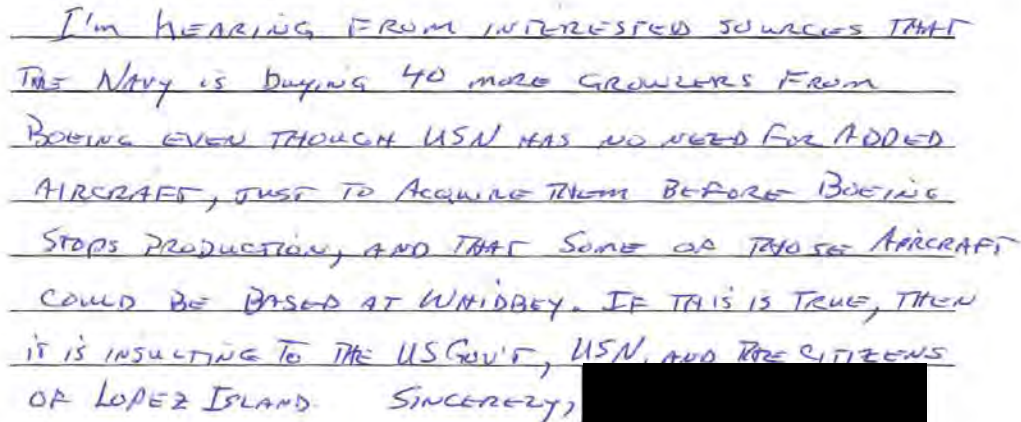 I'm HEARING FROM INTERESTED SOURCES THAT
THE NAVY is buying 40 MORE GROWLERS FROM
BOEING EVEN THOUGH USN HAS NO NEED FOR ADDED
AIRCRAFT, JUST TO ACQUIRE THEM BEFORE BOEING
STOPS PRODUCTION, AND THAT SOME OF THOSE AIRCRAFT
COULD BE BASED AT WHIDBEY. IF THIS IS TRUE, THEN
iT iS INSULTING TO THE US GOV'T, USN, AND THE CITIZENS
OF LOPEZ ISLAND. SINCERELY,